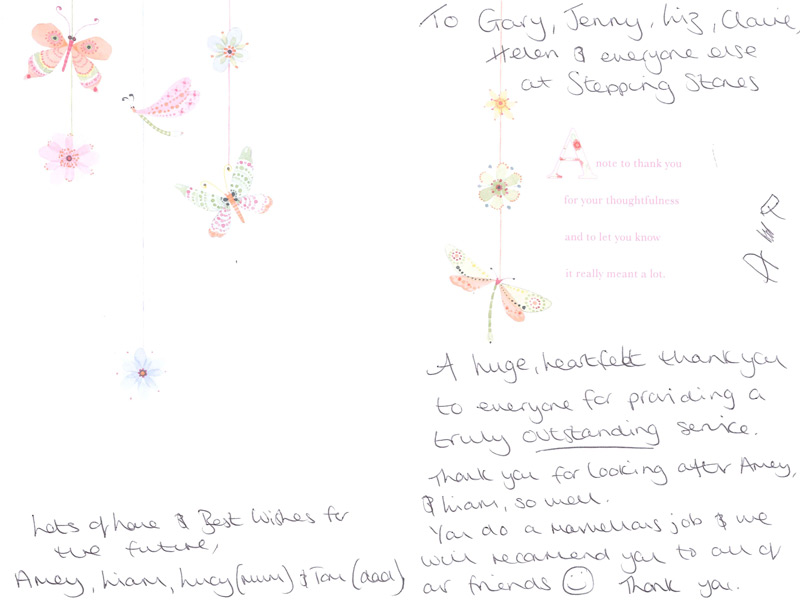 To Gary, Jenny, Liz, Claire,
Helen & everyone else
at Stepping Stones
A note to thank you
for your thoughtfulness
and to let you know
it really meant a lot.
A huge, heartfelt thank you
to everyone for providing a
truly outstanding service.
Thank you for looking after Amey,
& Liam, so well.
You do a marvellous job & we
will recommend you to all of
our friends ☺ Thank you.
Lots of love & Best Wishes for
the future,
Amey, Liam, Lucy (mum) & Tom (dad)